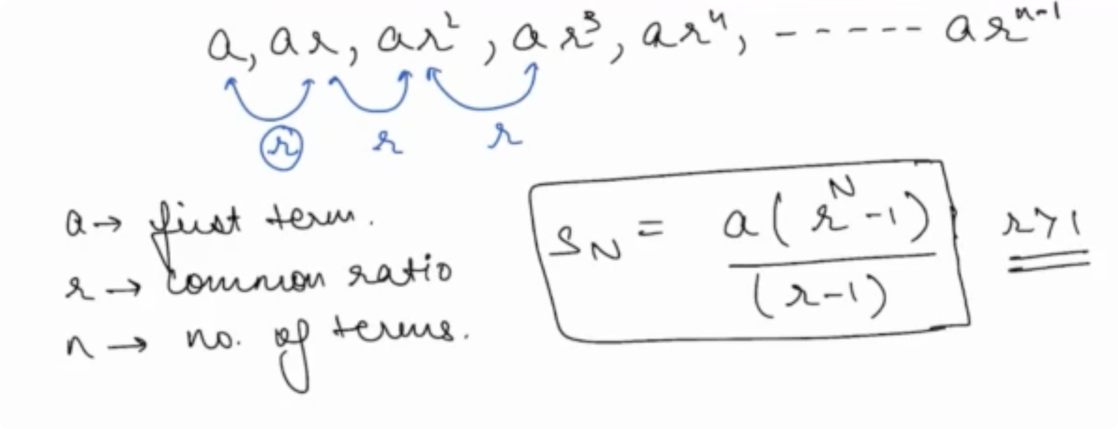 a, ar, ar², ar³, ar⁴, ------ arⁿ⁻¹
r r r
a → first term.
r → common ratio
n → no. of terms.
S_N = a(r^N - 1) / (r-1) r>1